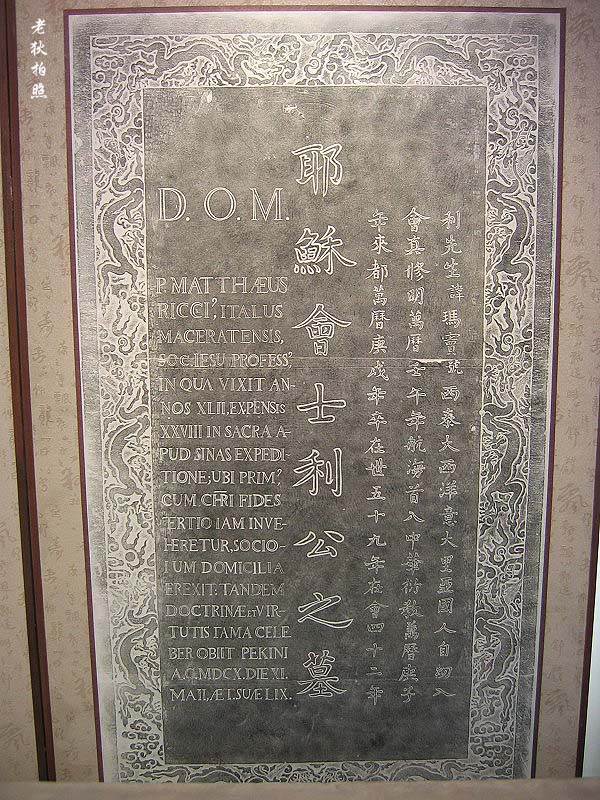 老狄拍照
D. O. M.
P. MATTHÆUS
RICCI, ITALUS
MACERATENSIS,
SOC. IESU PROFESS,
IN QUA VIXIT AN-
NOS XLII, EXPENSIS
XXVIII IN SACRA A-
PUD SINAS EXPEDI-
TIONE; UBI PRIM,
CUM CHRI FIDES
TERTIO IAM INVE-
HERETUR, SOCIO-
IUM DOMICILIA
EREXIT: TANDEM
DOCTRINÆ ET VIR-
TUTIS FAMA CELE
BER OBIIT PEKINI
A.C. MDCX. DIE XI.
MAII, ÆT. SUÆ LIX.
耶穌會士利公之墓
利先生諱瑪竇號西泰大西洋意大里亞國人自幼入
會真修明萬曆壬午年航海首入中華衍教萬曆庚子
年來都萬曆庚戌年卒在世五十九年在會四十二年